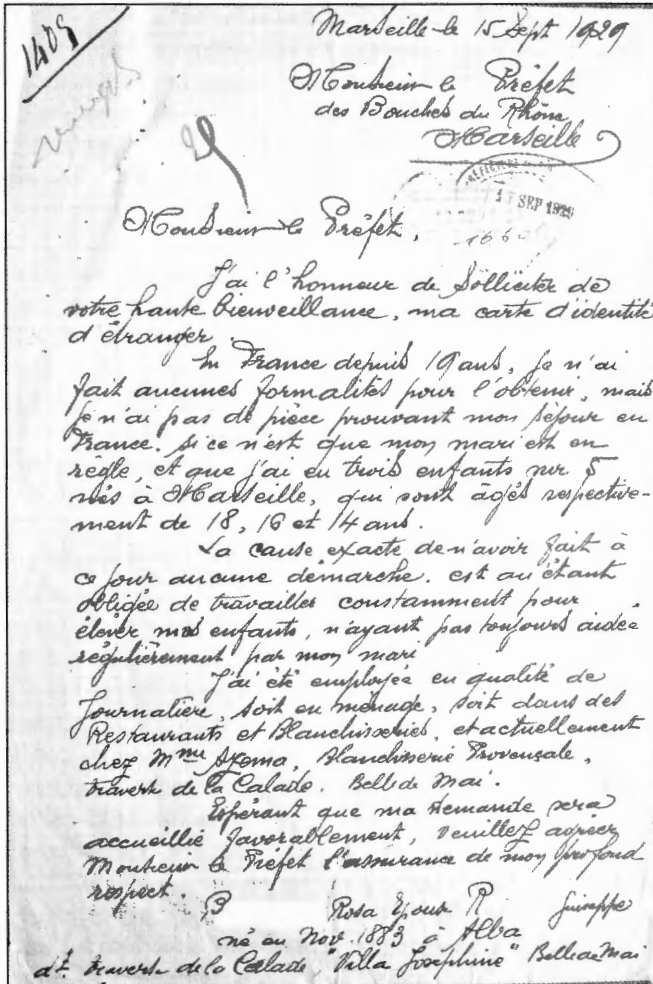 1409
Marseille le 15 Sept 1929
Monsieur le Préfet
des Bouches du Rhône
Marseille
17 SEP 1929
Monsieur le Préfet,
J'ai l'honneur de Solliciter de
votre haute bienveillance, ma carte d'identité
d'étranger.
En France depuis 19 ans, je n'ai
fait aucunes formalités pour l'obtenir, mais
je n'ai pas de pièce prouvant mon séjour en
France. si ce n'est que mon mari est en
règle, et que j'ai eu trois enfants sur 5
nés à Marseille, qui sont âgés respective-
ment de 18, 16 et 14 ans.
La cause exacte de n'avoir fait à
ce jour aucune démarche. est qu'étant
obligée de travailler constamment pour
élever mes enfants, n'ayant pas toujours aidée
régulièrement par mon mari
J'ai été employée en qualité de
Journalière, soit en ménage, soit dans des
Restaurants et Blanchisseries, et actuellement
chez Mme Azema, Blanchisserie Provençale,
traverse de la Calade. Belle de Mai.
Espérant que ma demande sera
accueillie favorablement, veuillez agréer
Monsieur le Préfet l'assurance de mon profond
respect.
B Rosa Epouse R Guiseppe
né en Nov. 1883 à Alba
dt. traverse de la Calade "Villa Joséphine" Belle de Mai